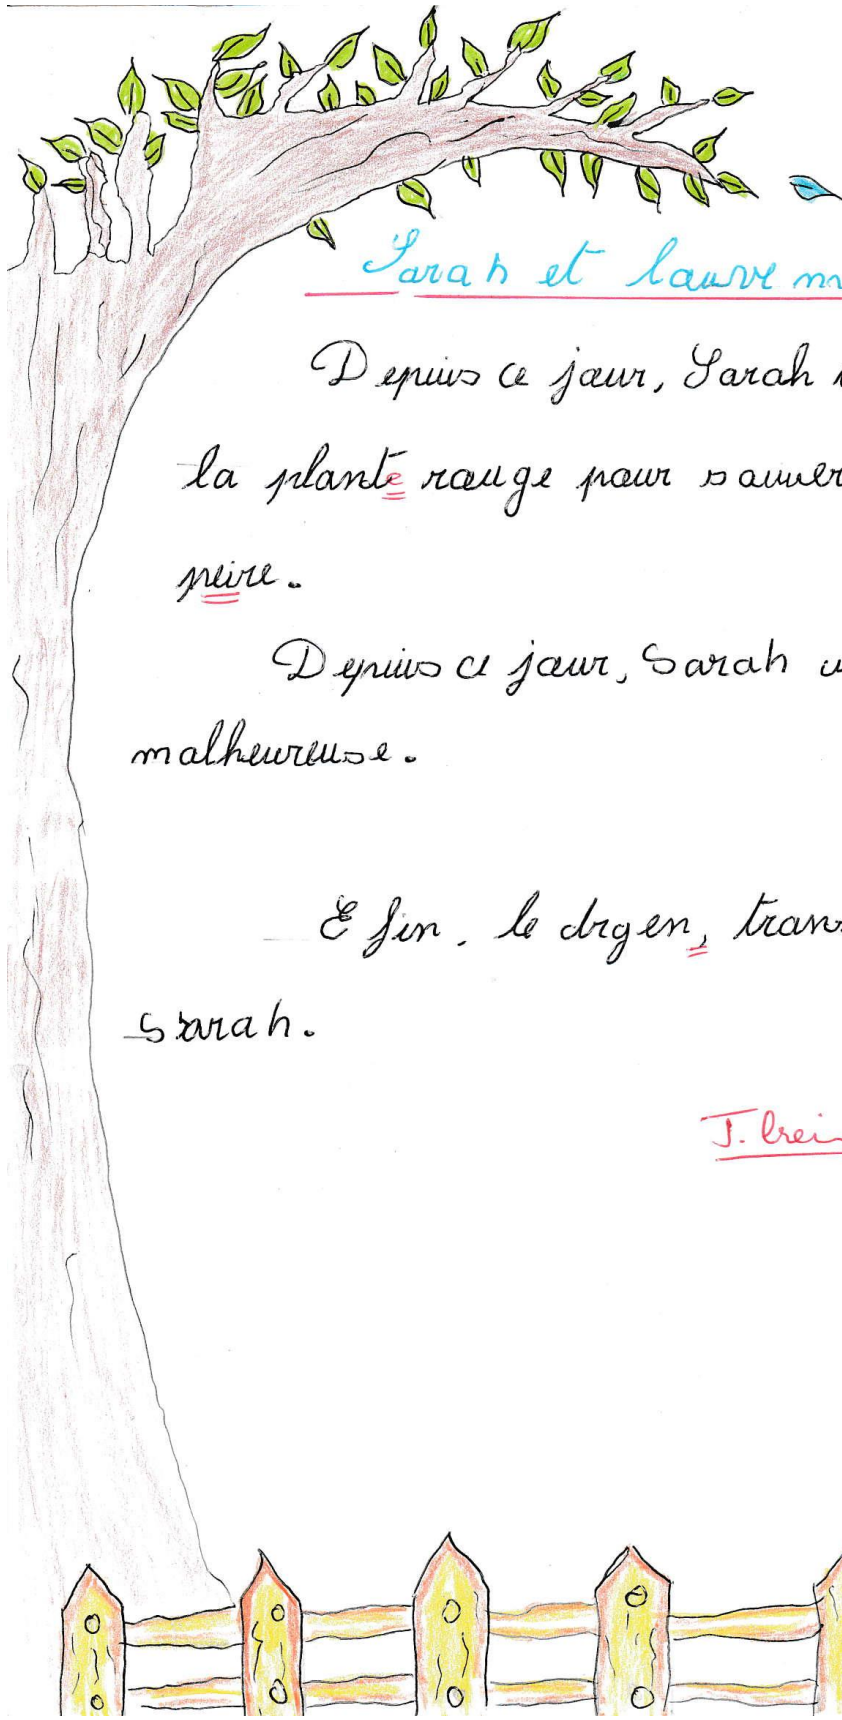 Sarah et
Depuis ce jour, Sarah
la plante rouge pour sauver
peire.
Depuis ce jour, Sarah
malheureuse.
E fin. le drgen, trans
Sarah.
T.